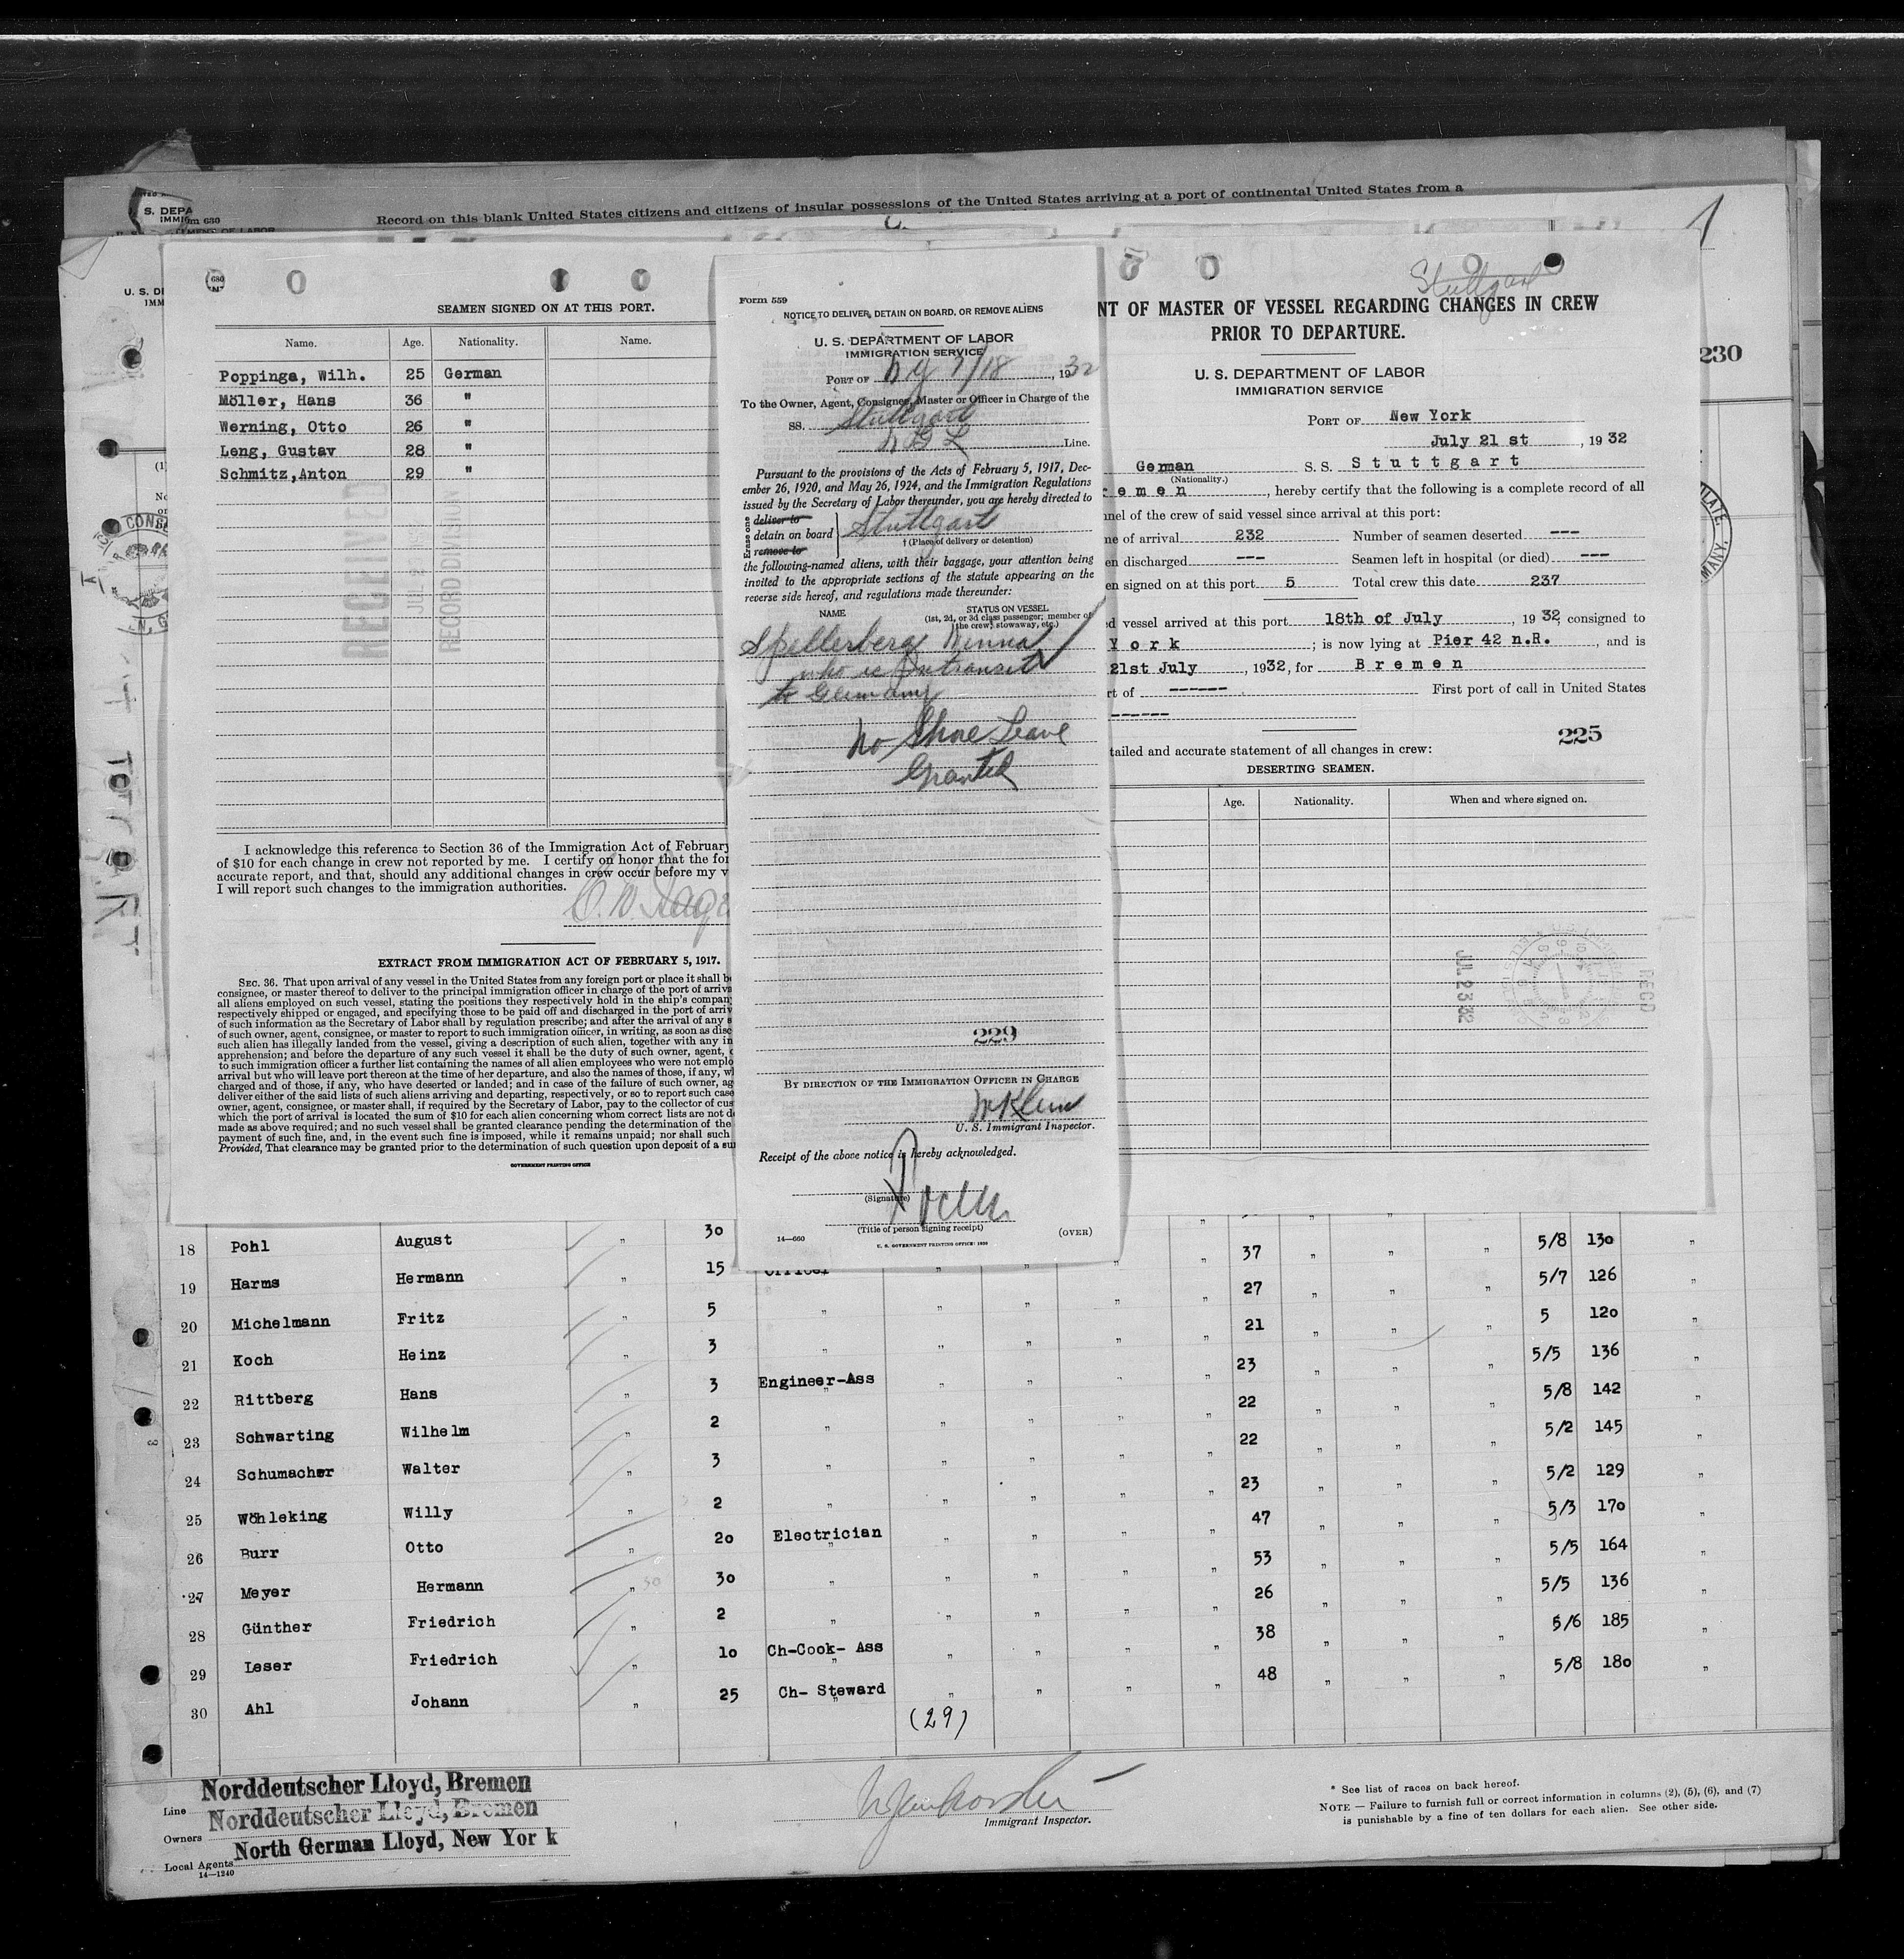 Record on this blank United States citizens and citizens of insular possessions of the United States arriving at a port of continental United States from a
S. DEPA
IMMIG
m 680
MENT OF LABOR
U. S. DE
IMM
1
230
SEAMEN SIGNED ON AT THIS PORT.
Name. Age. Nationality. Name.
Poppinga, Wilh. 25 German
Möller, Hans 36 "
Werning, Otto 26 "
Leng, Gustav 28 "
Schmitz,Anton 29 "
RECEIVED
RECORD DIVISION
I acknowledge this reference to Section 36 of the Immigration Act of February
of $10 for each change in crew not reported by me. I certify on honor that the for
accurate report, and that, should any additional changes in crew occur before my v
I will report such changes to the immigration authorities.
EXTRACT FROM IMMIGRATION ACT OF FEBRUARY 5, 1917.
SEC. 36. That upon arrival of any vessel in the United States from any foreign port or place it shall b
consignee, or master thereof to deliver to the principal immigration officer in charge of the port of arriva
all aliens employed on such vessel, stating the positions they respectively hold in the ship's compan
respectively shipped or engaged, and specifying those to be paid off and discharged in the port of arriv
of such information as the Secretary of Labor shall by regulation prescribe; and after the arrival of any s
of such owner, agent, consignee, or master to report to such immigration officer, in writing, as soon as disc
such alien has illegally landed from the vessel, giving a description of such alien, together with any in
apprehension; and before the departure of any such vessel it shall be the duty of such owner, agent, c
to such immigration officer a further list containing the names of all alien employees who were not emplo
arrival but who will leave port thereon at the time of her departure, and also the names of those, if any, w
charged and of those, if any, who have deserted or landed; and in case of the failure of such owner, ag
deliver either of the said lists of such aliens arriving and departing, respectively, or so to report such case
owner, agent, consignee, or master shall, if required by the Secretary of Labor, pay to the collector of cus
which the port of arrival is located the sum of $10 for each alien concerning whom correct lists are not d
made as above required; and no such vessel shall be granted clearance pending the determination of the
payment of such fine, and, in the event such fine is imposed, while it remains unpaid; nor shall such
Provided, That clearance may be granted prior to the determination of such question upon deposit of a su
GOVERNMENT PRINTING OFFICE
Form 559
NOTICE TO DELIVER, DETAIN ON BOARD, OR REMOVE ALIENS
U. S. DEPARTMENT OF LABOR
IMMIGRATION SERVICE
PORT OF NY 7/18, 1932
To the Owner, Agent, Consignee, Master or Officer in Charge of the
SS. Stuttgart
N G L Line.
Pursuant to the provisions of the Acts of February 5, 1917, Dec-
ember 26, 1920, and May 26, 1924, and the Immigration Regulations
issued by the Secretary of Labor thereunder, you are hereby directed to
Erase one
deliver to
detain on board Stuttgart
remove to † (Place of delivery or detention)
the following-named aliens, with their baggage, your attention being
invited to the appropriate sections of the statute appearing on the
reverse side hereof, and regulations made thereunder:
NAME STATUS ON VESSEL
(1st, 2d, or 3d class passenger; member of
the crew; stowaway, etc.)
Spellerberg Minna
who is in transit
to Germany
No Shore Leave
Granted
229
BY DIRECTION OF THE IMMIGRATION OFFICER IN CHARGE
U. S. Immigrant Inspector.
Receipt of the above notice is hereby acknowledged.
(Signature)
(Title of person signing receipt)
14—660 (OVER)
U. S. GOVERNMENT PRINTING OFFICE: 1930
Stuttgart
NT OF MASTER OF VESSEL REGARDING CHANGES IN CREW
PRIOR TO DEPARTURE.
U. S. DEPARTMENT OF LABOR
IMMIGRATION SERVICE
PORT OF New York
July 21 st, 1932
German S. S. Stuttgart
(Nationality.)
remen, hereby certify that the following is a complete record of all
nnel of the crew of said vessel since arrival at this port:
me of arrival 232 Number of seamen deserted ---
en discharged --- Seamen left in hospital (or died) ---
en signed on at this port 5 Total crew this date 237
d vessel arrived at this port 18th of July, 1932, consigned to
York; is now lying at Pier 42 n.R., and is
21st July, 1932, for Bremen
rt of ------ First port of call in United States
------
225
tailed and accurate statement of all changes in crew:
DESERTING SEAMEN.
Age. Nationality. When and where signed on.
JUL 23 32
RECD
18 Pohl August " 30 " 37 " " " 5/8 130 "
19 Harms Hermann " 15 Officer " " " " 27 " " " 5/7 126 "
20 Michelmann Fritz " 5 " " " " " 21 " " " 5 120 "
21 Koch Heinz " 3 " " " " " 23 " " " 5/5 136 "
22 Rittberg Hans " 3 Engineer-Ass " " " " 22 " " " 5/8 142 "
23 Schwarting Wilhelm " 2 " " " " " 22 " " " 5/2 145 "
24 Schumacher Walter " 3 " " " " " 23 " " " 5/2 129 "
25 Wöhleking Willy " 2 " " " " " 47 " " " 5/3 170 "
26 Burr Otto " 20 Electrician " " " " 53 " " " 5/5 164 "
27 Meyer Hermann " 30 " " " " " 26 " " " 5/5 136 "
28 Günther Friedrich " 2 " " " " " 38 " " " 5/6 185 "
29 Leser Friedrich " 10 Ch-Cook- Ass " " " " 48 " " " 5/8 180 "
30 Ahl Johann " 25 Ch- Steward " " " "
(29)
Line Norddeutscher Lloyd, Bremen
Owners Norddeutscher Lloyd, Bremen
Local Agents North German Lloyd, New York
14—1240
Immigrant Inspector.
* See list of races on back hereof.
NOTE — Failure to furnish full or correct information in columns (2), (5), (6), and (7)
is punishable by a fine of ten dollars for each alien. See other side.